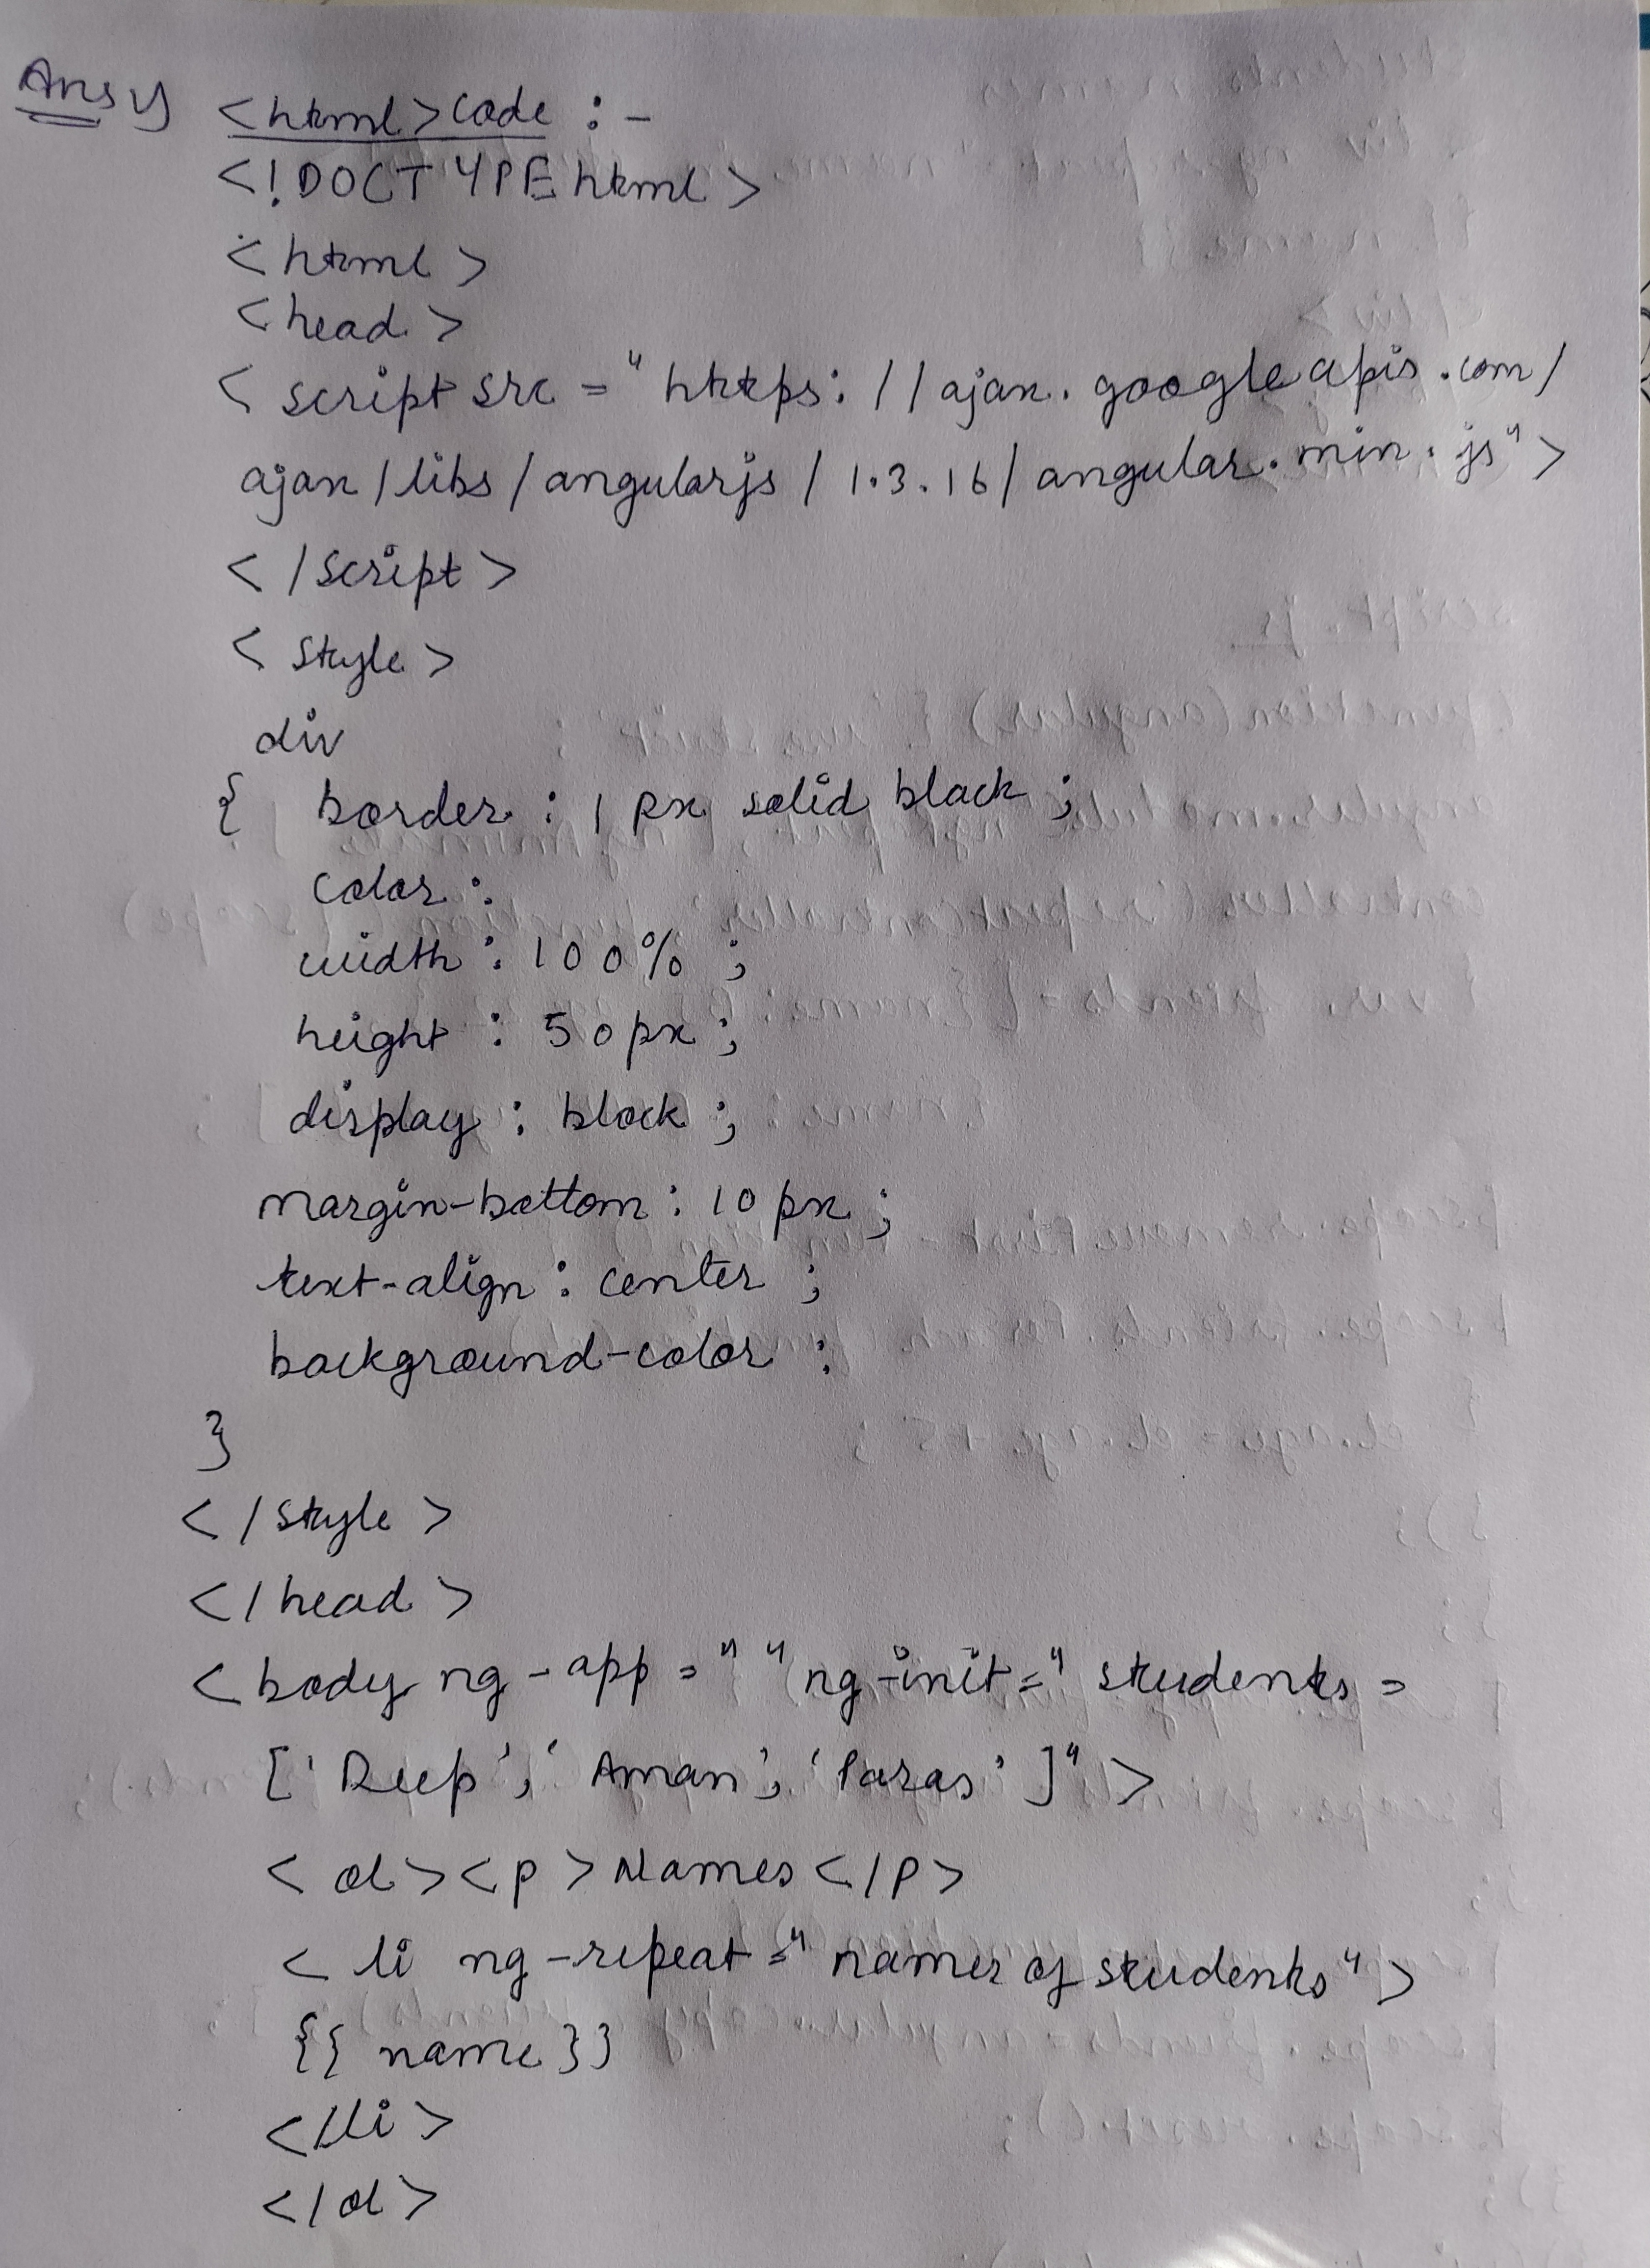 Ans 4) <html> code :-
<!DOCTYPE html>
<html>
<head>
<script src = "https://ajax.googleapis.com/
ajax/libs/angularjs/1.3.16/angular.min.js">
</script>
<style>
div
{ border : 1px solid black ;
color :
width : 100% ;
height : 50px ;
display : block ;
margin-bottom : 10px ;
text-align : center ;
background-color :
}
</style>
</head>
<body ng-app = " " ng-init = " students =
['Deep', 'Aman', 'Paras' ]">
<ol><p>Names</p>
<li ng-repeat = " names of students ">
{{ name }}
</li>
</ol>